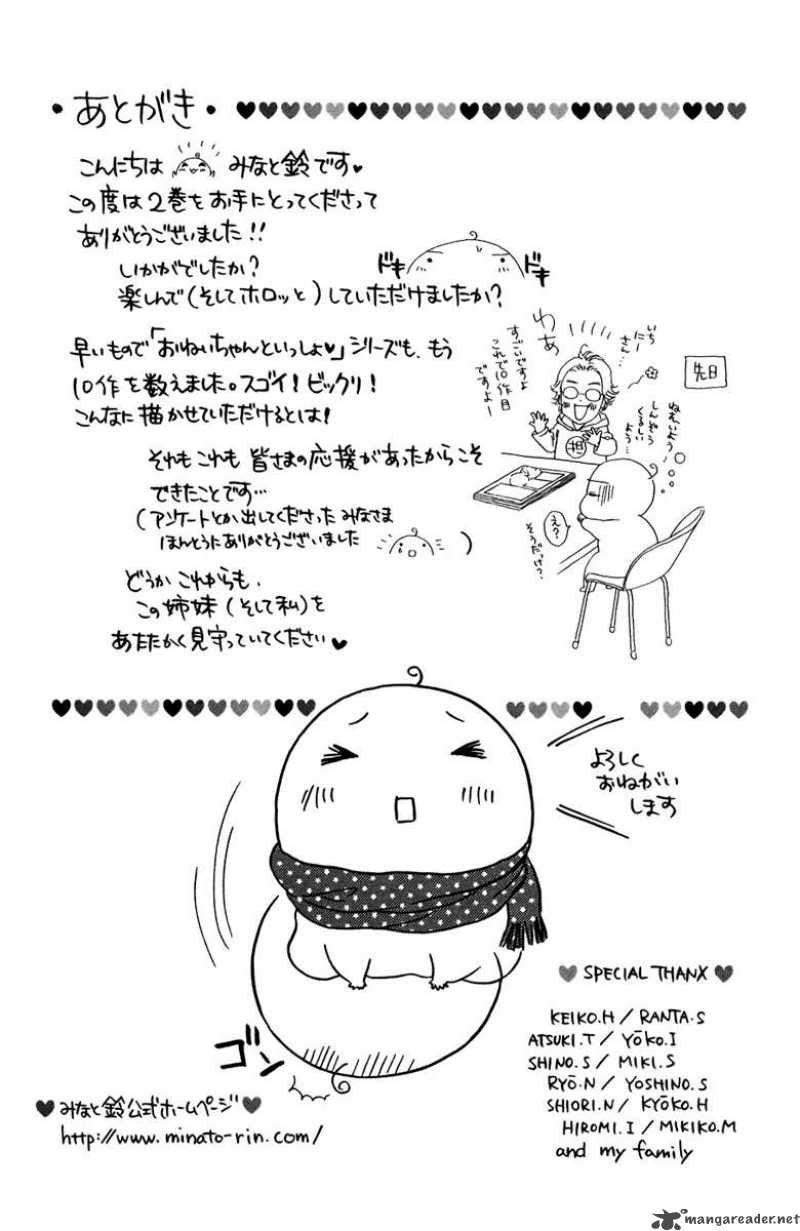 ・あとがき・
こんにちは みなと鈴です♥
この度は2巻をお手にとってくださって
ありがとうございました!!
いかがでしたか?
楽しんで(そしてホロッと)していただけましたか?
ドキ
ドキ
早いもので「おねいちゃんといっしょ♥」シリーズも、もう
10作を数えました。スゴイ!ビックリ!
こんなに描かせていただけるとは!
それもこれも皆さまの応援があったからこそ
できたことです…
(アンケートとか出してくださったみなさま
ほんとうにありがとうございました )
どうかこれからも、
この姉妹(そして私)を
あたたかく見守っていてください♥
先日
いち
にー
さん…
わぁ
すごいですよ
これで10作目
ですよー
担
ねむいよう
しんぞう
くるしい
よう…
え?
そうだっけ?
よろしく
おねがい
します
ゴン
♥ SPECIAL THANX ♥
KEIKO.H / RANTA.S
ATSUKI.T / YŌKO.I
SHINO.S / MIKI.S
RYŌ.N / YOSHINO.S
SHIORI.N / KYŌKO.H
HIROMI.I / MIKIKO.M
and my family
♥みなと鈴公式ホームページ♥
http://www.minato-rin.com/
mangareader.net